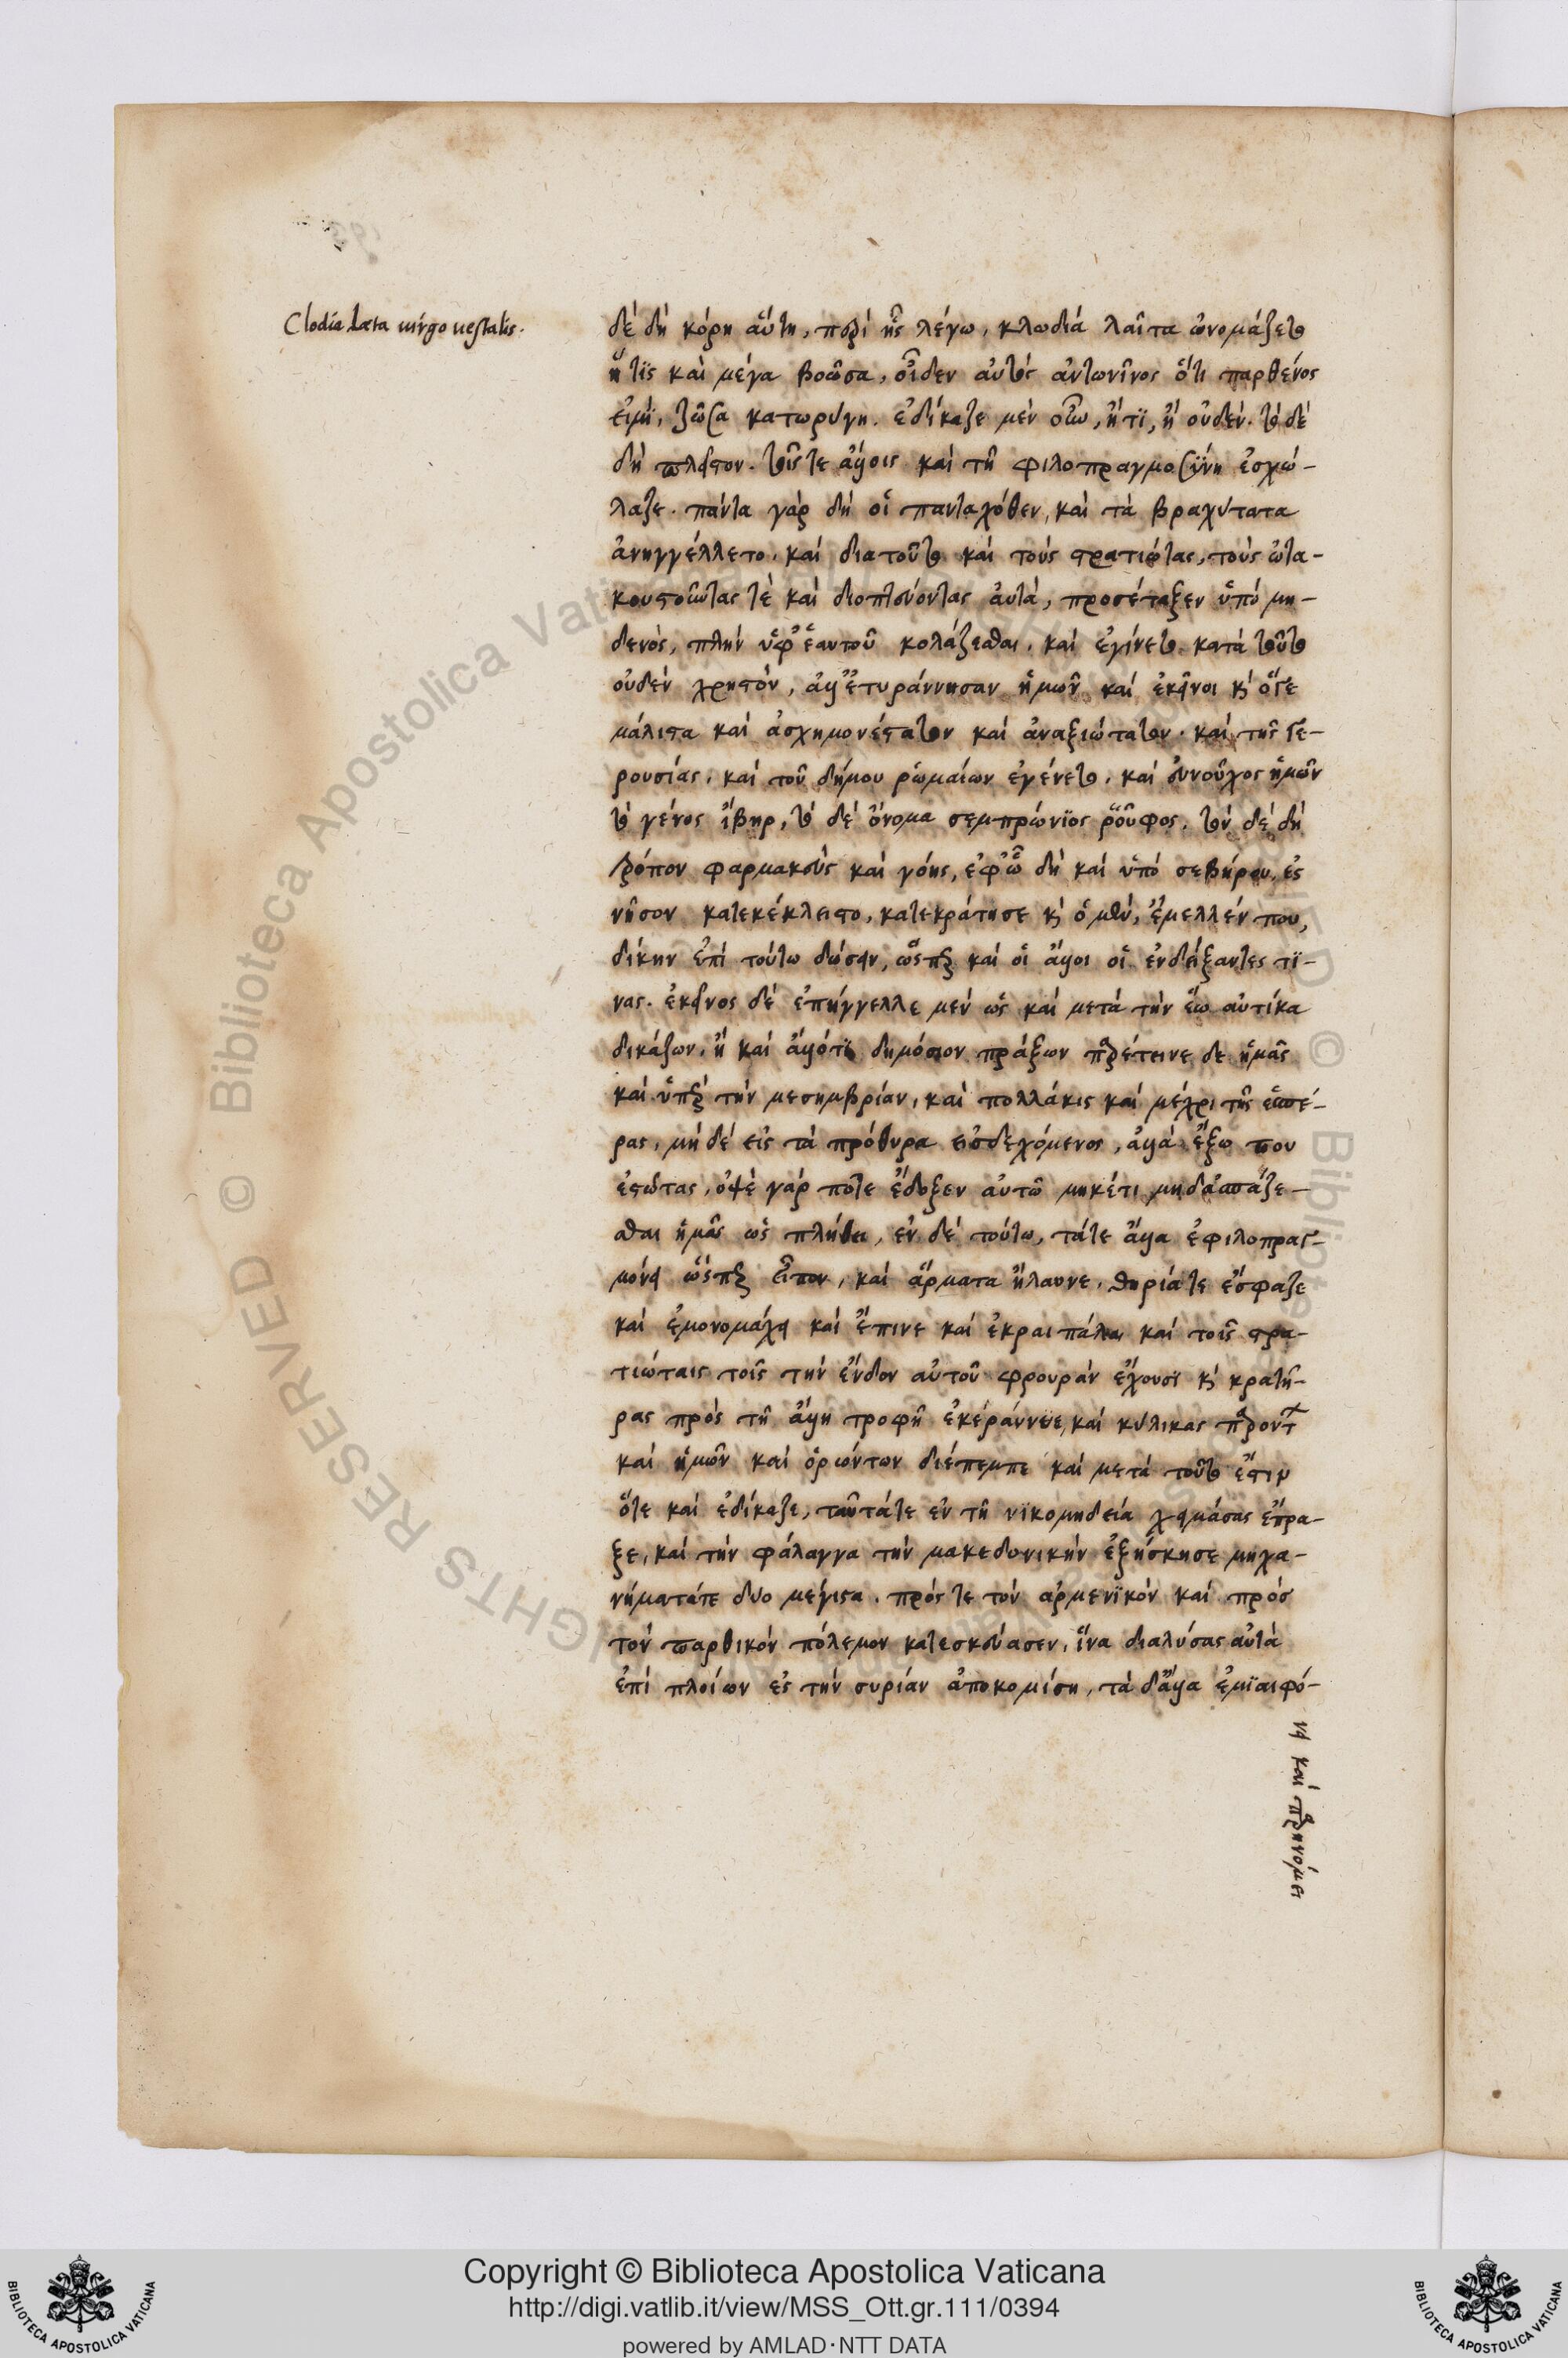 Clodia Læta uirgo uestalis.
δὲ δὴ κόρη αὕτη, περὶ ἧς λέγω, κλωδιά λαῖτα ὠνομάζετο
ἥτις καὶ μέγα βοῶσα, οἶδεν αὐτὸς ἀντωνῖνος ὅτι παρθένος
εἰμὶ, ζῶσα κατωρύγη. ἐδίκαζε μὲν οὖν, ἤ τϊ, ἢ οὐδέν. τὸ δὲ
δὴ πλεῖστον. τοῖς τε ἄλλοις καὶ τῇ φιλοπραγμοσύνη ἐσχό-
λαζε. πάντα γὰρ δὴ οἱ πανταχόθεν, καὶ τὰ βραχύτατα
ἀνηγγέλλετο. καὶ διατοῦτο καὶ τοὺς στρατιώτας, τοὺς ὠτα-
κουστοῦντας τὲ καὶ διοπτεύοντας αὐτά, προσέταξεν ὑπὸ μη-
δενὸς, πλὴν ὑφ' ἑαυτοῦ κολάζεσθαι. καὶ ἐγίνετο κατὰ τοῦτο
οὐδὲν χρηστὸν, ἀλλ' ἐτυράννησαν ἡμῶν καὶ ἐκεῖνοι κὶ ὅγε
μάλιστα καὶ ἀσχημονέστατον καὶ ἀναξιώτατον. καὶ τῆς γε-
ρουσίας. καὶ τοῦ δήμου ῥωμαίων ἐγένετο. καὶ εὐνοῦχος ἡμῶν
τὸ γένος ἴβηρ, τὸ δὲ ὄνομα σεμπρώνϊος ῥοῦφος. τὸν δὲ δὴ
τρόπον φαρμακεὺς καὶ γόης, ἐφ' ᾧ δὴ καὶ ὑπὸ σεβήρου, ἐς
νῆσον κατεκέκλειστο, κατεκράτησε κὶ ὁ μὲν, ἔμελλέν που,
δίκην ἐπὶ τούτω δώσειν, ὥσπερ καὶ οἱ ἄλλοι οἱ ἐνδείξαντες τϊ-
νας. ἐκεῖνος δὲ ἐπήγγελλε μὲν ὡς καὶ μετὰ τὴν ἕω αὐτίκα
δικάζων, ἢ καὶ ἄλλό τϊ δημόσιον πράξων παρέτεινε δε ἡμᾶς
καὶ ὑπὲρ τὴν μεσημβρίαν, καὶ πολλάκις καὶ μέχρι τῆς ἑσπέ-
ρας, μὴ δὲ εἰς τὰ πρόθυρα εἰσδεχόμενος, ἀλλὰ ἔξω που
ἑστῶτας, ὀψὲ γάρ ποτε ἔδοξεν αὐτῶ μηκέτι μηδ' ἀσπάζε-
σθαι ἡμᾶς ὡς πλήθει, ἐν δὲ τούτω, τά τε ἄλλα ἐφιλοπραγ-
μόνει ὥσπερ εἶπον, καὶ ἅρματα ἤλαυνε, θηρία τε ἔσφαζε
καὶ ἐμονομάχει καὶ ἔπινε καὶ ἐκραιπάλα καὶ τοῖς στρα-
τιώταις τοῖς τὴν ἔνδον αὐτοῦ φρουρὰν ἔχουσϊ κὶ κρατῆ-
ρας πρὸς τῇ ἄλλη τροφῇ ἐκεράννυε, καὶ κύλικας παρόντ
καὶ ἡμῶν καὶ ὁρώντων διέπεμπε καὶ μετὰ τοῦτο ἔστιν
ὅτε καὶ ἐδίκαζε, ταῦτά τε ἐν τῇ νϊκομηδεία χειμάσας ἔπρα-
ξε, καὶ τὴν φάλαγγα τὴν μακεδονικὴν ἐξήσκησε μηχα-
νήματάτε δυο μέγιστα. πρός τε τὸν ἀρμενϊκὸν καὶ πρὸς
τὸν παρθικὸν πόλεμον κατεσκεύασεν, ἵνα διαλύσας αὐτὰ
ἐπὶ πλοίων ἐς τὴν συρίαν ἀποκομίση, τὰ δ' ἄλλα ἐμϊαιφό-
νει καὶ παρηνόμει
Copyright © Biblioteca Apostolica Vaticana
http://digi.vatlib.it/view/MSS_Ott.gr.111/0394
powered by AMLAD·NTT DATA